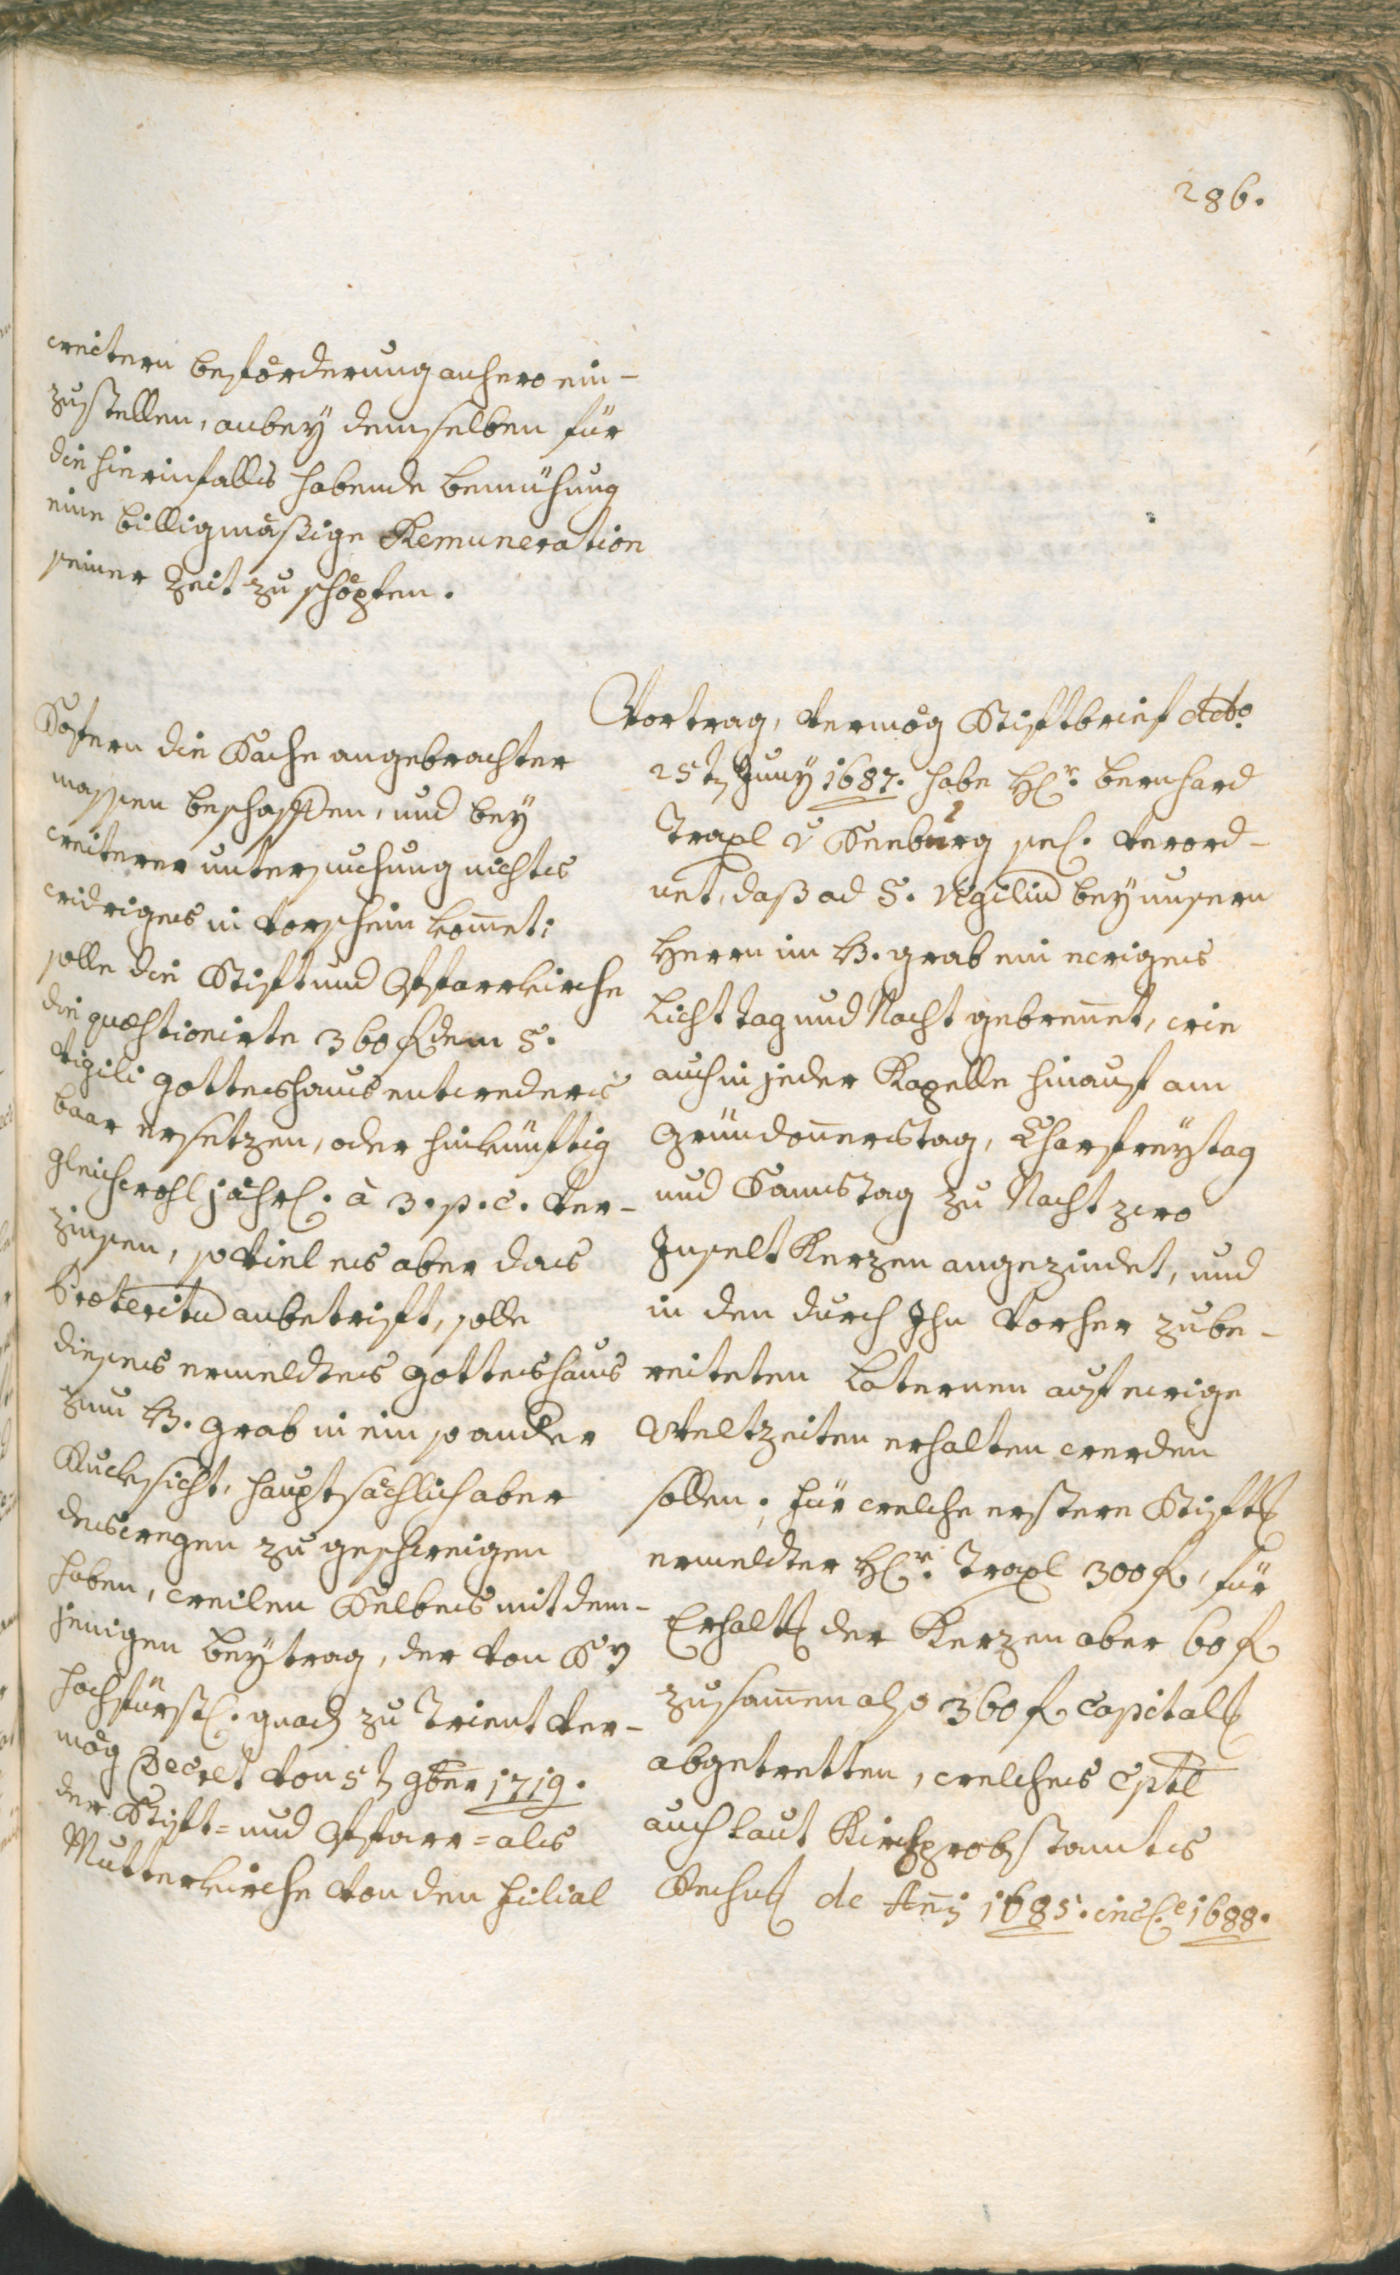 286.
weitern beförderung anhero ein-
zustellen, anbey demselben für
die hierinfalls habende bemühung
eine billigmäßige Remuneration
seiner Zeit zu schöpfen.
Sofern die Sache angebrachter
massen beschaffen, und bey
weiterer untersuchung nichts
widriges in vorschein kom̄et;
solle die Stift und Pfarrkirche
die quæstionirte 360 f dem S.
Vigili gotteshaus entweders
baar ersetzen, oder hinkünftig
gleichwohl jährl. à 3. p. c. ver-
zinsen, so viel es aber das
Præteritum anbetrift, solle
dieses ermeldtes gotteshaus
zum H. grab in ein so ander
Rucksicht, hauptsächlich aber
deswegen zu geschweigen
haben, weilen Selbes mit dem-
jenigen beytrag, der von Sr
hochfürstl. gnad zu Trient ver-
mög Decret von 5t 9ber 1719.
der Stift= und Pfarr= als
Mutterkirche von den Filial
Vortrag, vermög Stiftbrief dtdo
25t Juny 1687. habe Hr. bernhard
Traxl v Seeburg sel. verord-
net, daß ad S. Vigilium bey unsern
Herrn im H. grab ein ewiges
Licht tag und Nacht gebren̄et, wie
auch in jeder Kapelle hinauf am
Gründon̄erstag, Charfreytag
und Samstag zu Nacht zwo
Inselt Kerzen angezindet, und
in den durch Ihn vorher zube-
reiteten Laternen auf ewige
Weltzeiten erhalten werden
sollen; für welche erstere Stift
ermeldter Hr. Traxl 300 f, für
Erhalt der Kerzen aber 60 f
zusam̄en also 360 f Capital
abgetretten, welches Cptl
auch laut Kirchprobstamts
Rechn de An̄is 1685. incl.e 1688.